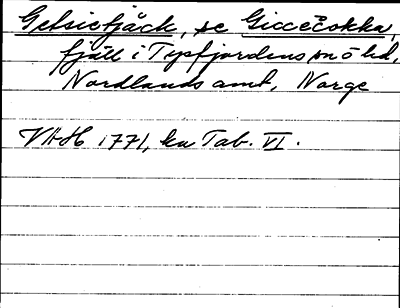 Getsietjåck, se Giccečokka,
fjäll i Tysfjordens sn ö led,
Nordlands amt, Norge
VAH 1771, ku Tab. VI.